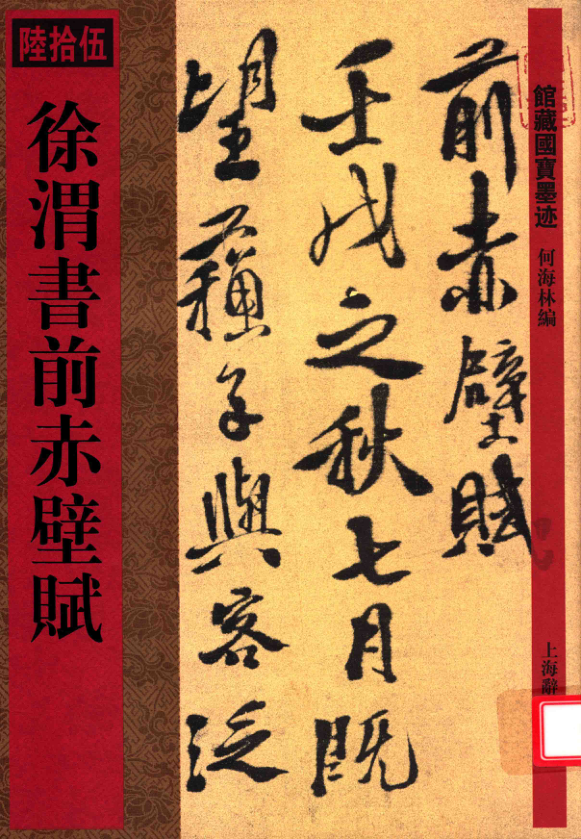 陸拾伍
徐渭書前赤壁賦
館藏國寶墨迹
何海林編
上海辭
前赤壁賦
壬戌之秋七月既
望蘓子與客泛